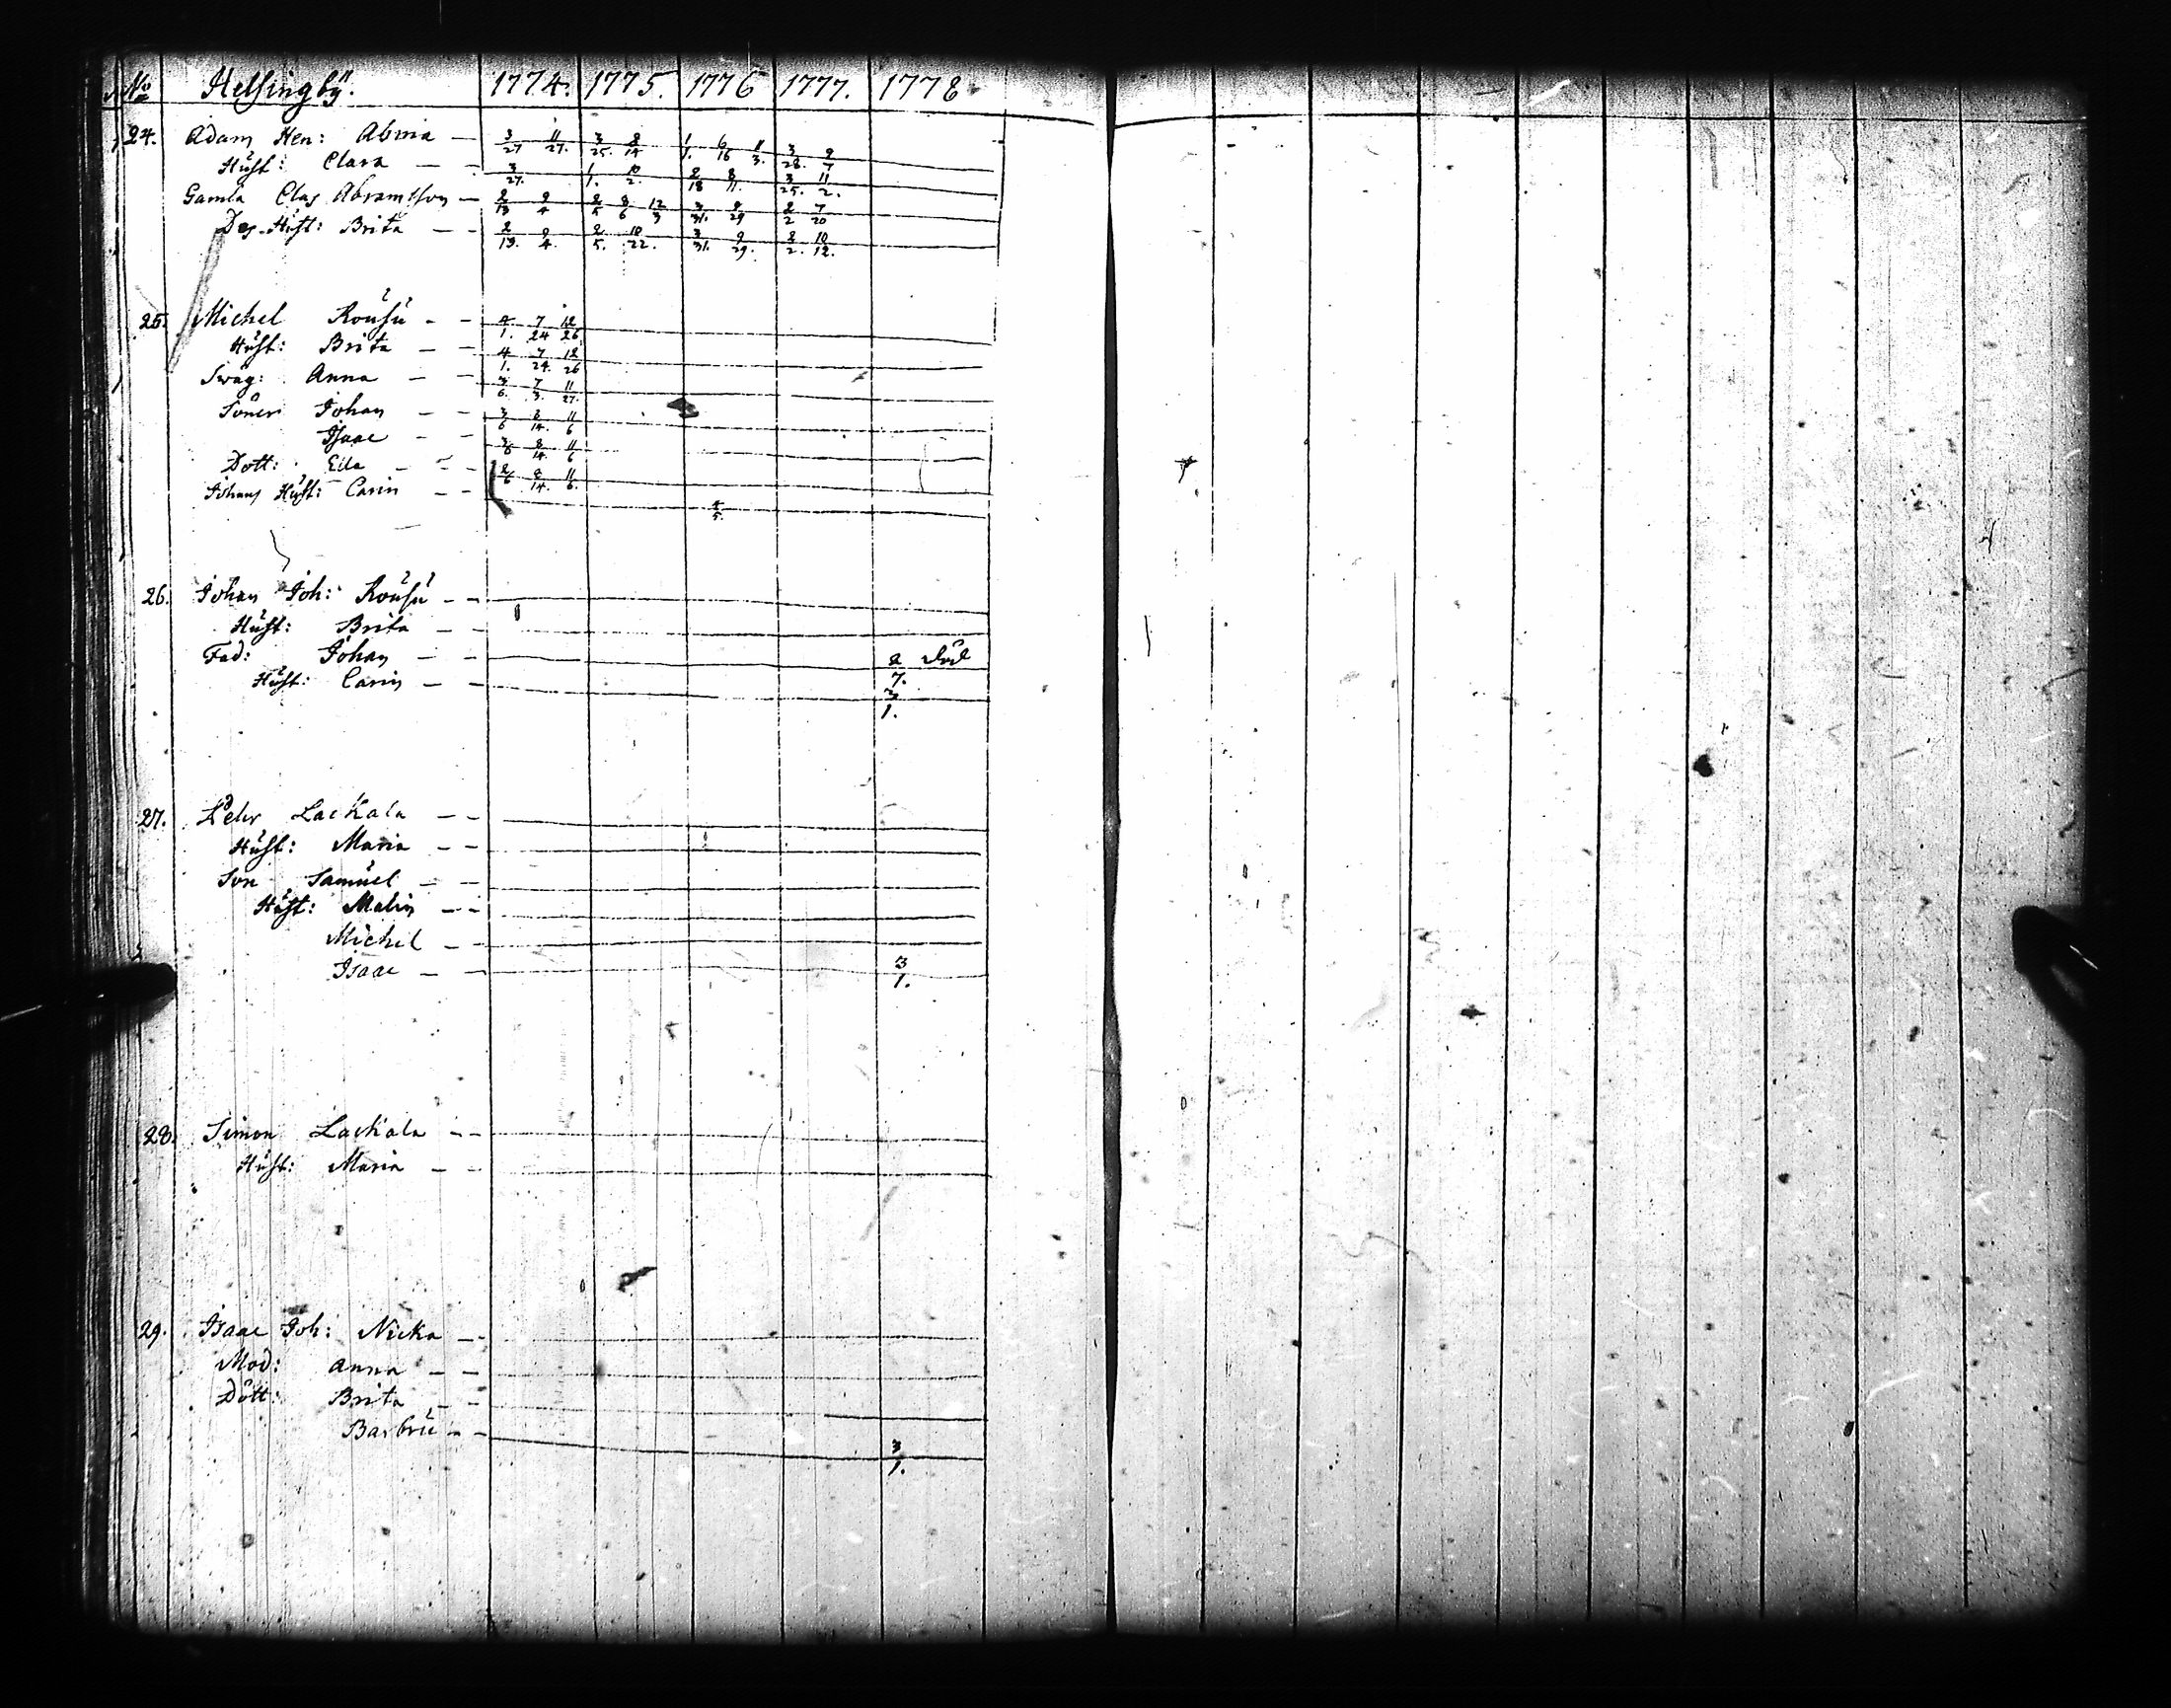 No Helsingbÿ. 1774. 1775. 1776 1777. 1778
24. Adam Hen: Abma — 3/27 11/27. 3/25. 8/14 1/1. 6/16 11/3. 3/28. 9/7
Hust: Clara — — 3/27. 1/1. 10/2. 2/18 8/11. 3/25. 11/2.
Gamla Clas Abramsson — 2/13 9/4 2/5 8/6 12/3 3/31. 9/29 2/2 7/20
Des Hust: Brita — — 2/13. 9/4. 2/5. 10/22. 3/31. 9/29. 2/2. 10/12.
25. Michel Rousu - — 4/1. 7/24 12/26
Hust: Brita — — 4/1. 7/24. 12/26
Swäg: Anna — — 3/6. 7/3. 11/27.
Söner Johan — — 3/6 8/14. 11/6
Isaac - — 3/6 8/14. 11/6
Dott: — — 2/6 8/14. 11/6.
Johans Hust: Carin — — 4/5.
26. Johan Joh: Rousu — —
Hust: Brita —
Fad: Johan — — 2/7. död
Hust: Carin — — 3/1.
27. Pehr Lackala — —
Hust: Maria — —
Son Samuel — —
Hust: Malin — —
Michel —
Isaac — — 3/1.
28. Simon Lackala — —
Hust: Maria — —
29. Isaac Joh: Nicka — -
Mod: Anna — —
Dött: Brita — —
Barbru — — 3/1.